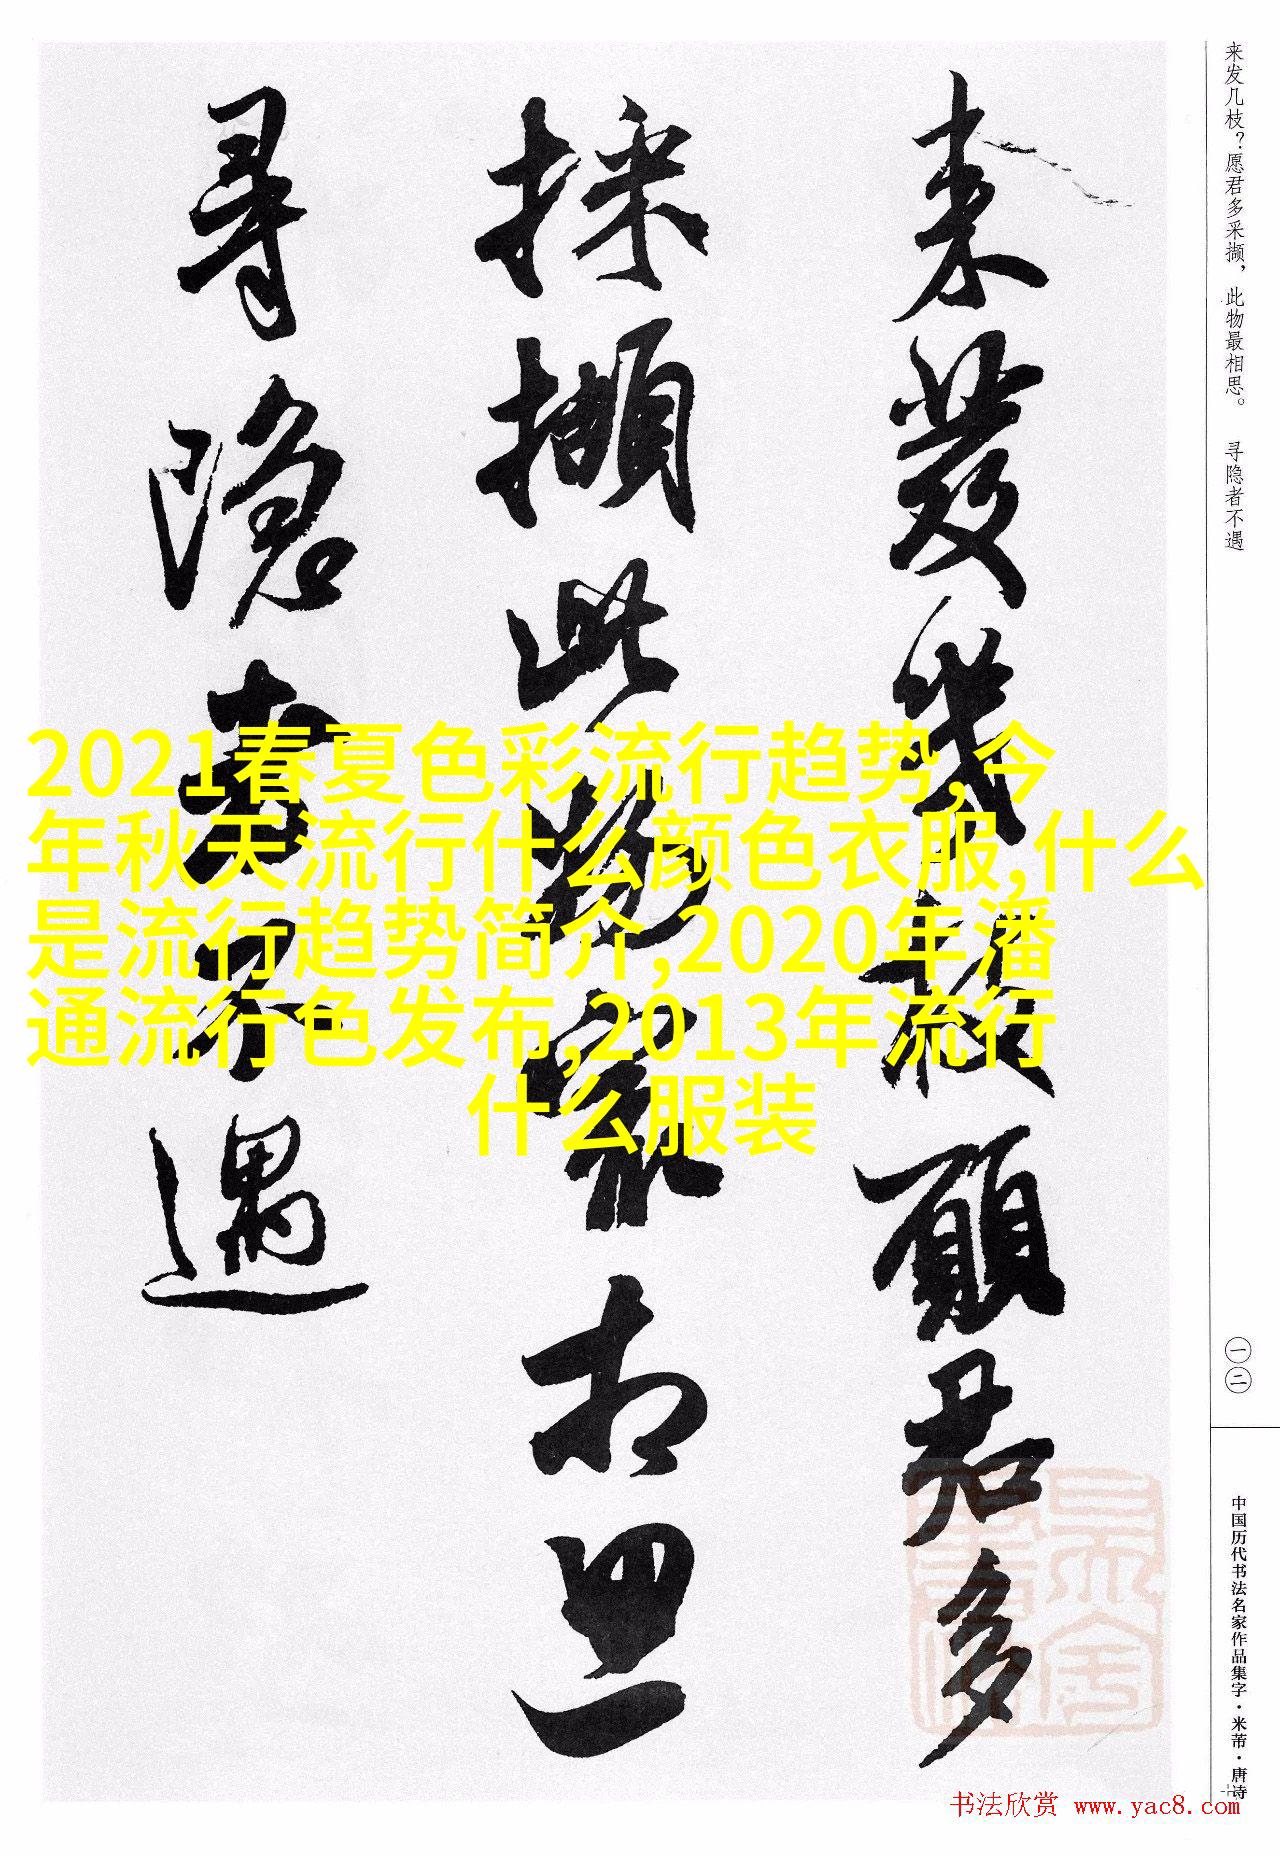 来发几枝？愿君多采撷，此物最相思。 寻隐者不遇
一二
中国历代书法名家作品集字·米芾·唐诗
来發幾枝願君多
採擷此物最相思
寻隐者不遇
2021春夏色彩流行趋势,今
年秋天流行什么颜色衣服,什么
是流行趋势简介,2020年潘
通流行色发布,2013年流行
什么服装
书法欣赏 www.yac8.com